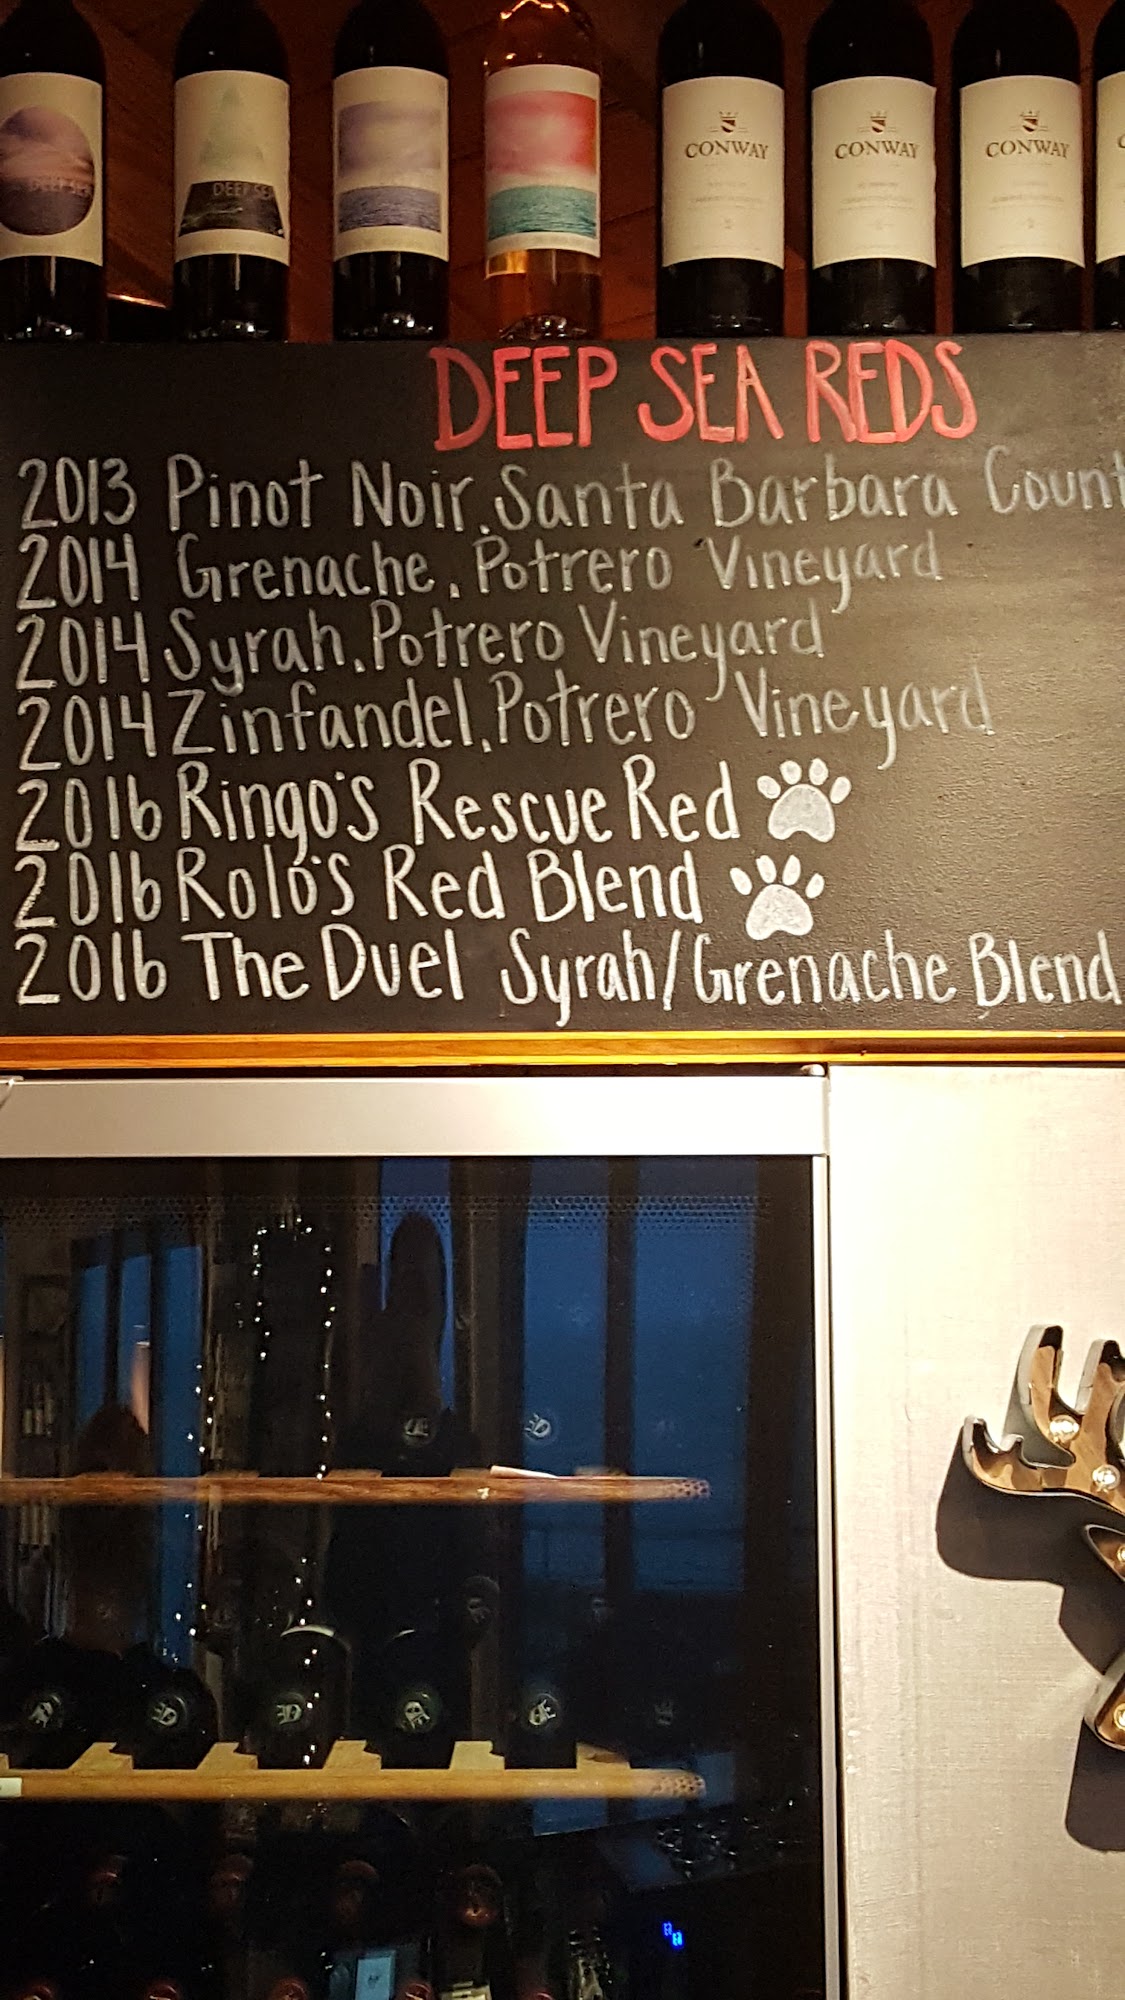 DEEP SEA
DEEP SEA
CONWAY
CONWAY
CONWAY
DEEP SEA REDS
2013 Pinot Noir, Santa Barbara Count
2014 Grenache, Potrero Vineyard
2014 Syrah, Potrero Vineyard
2014 Zinfandel, Potrero Vineyard
2016 Ringo's Rescue Red
2016 Rolo's Red Blend
2016 The Duel Syrah/Grenache Blend